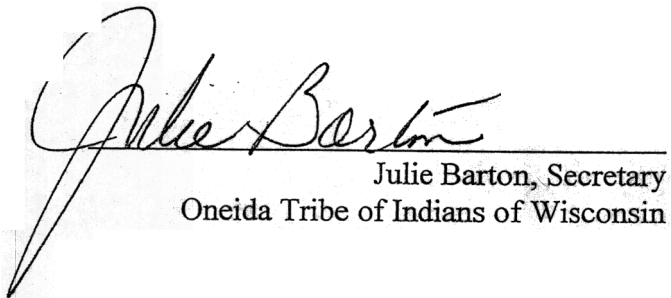 Julie Barton
Julie Barton, Secretary
Oneida Tribe of Indians of Wisconsin